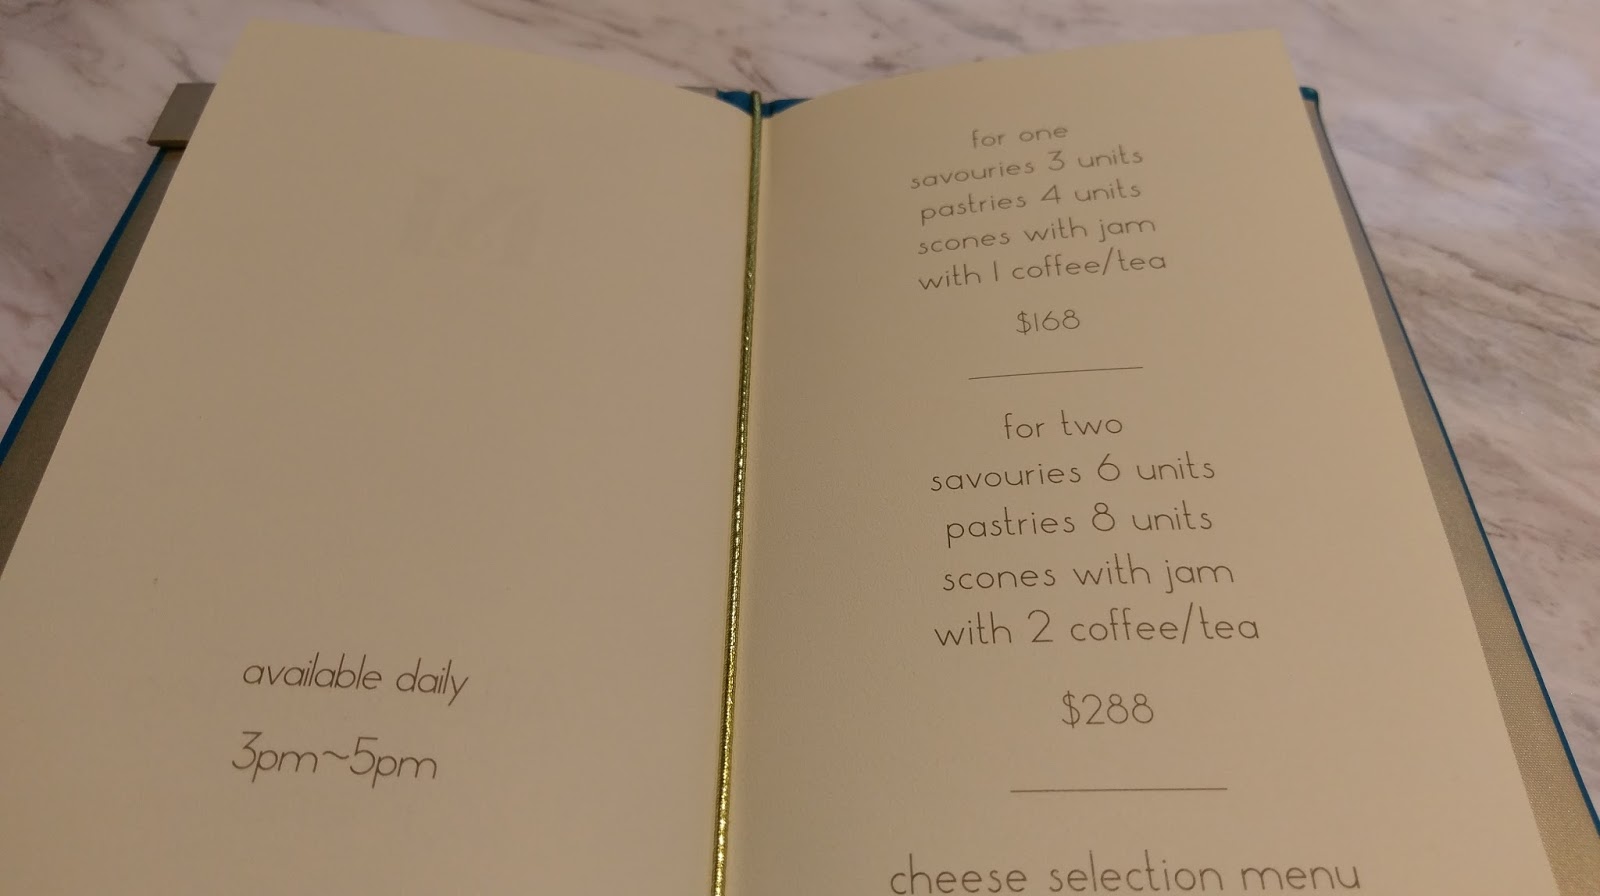 available daily
3pm~5pm
for one
savouries 3 units
pastries 4 units
scones with jam
with 1 coffee/tea
$168
for two
savouries 6 units
pastries 8 units
scones with jam
with 2 coffee/tea
$288
cheese selection menu